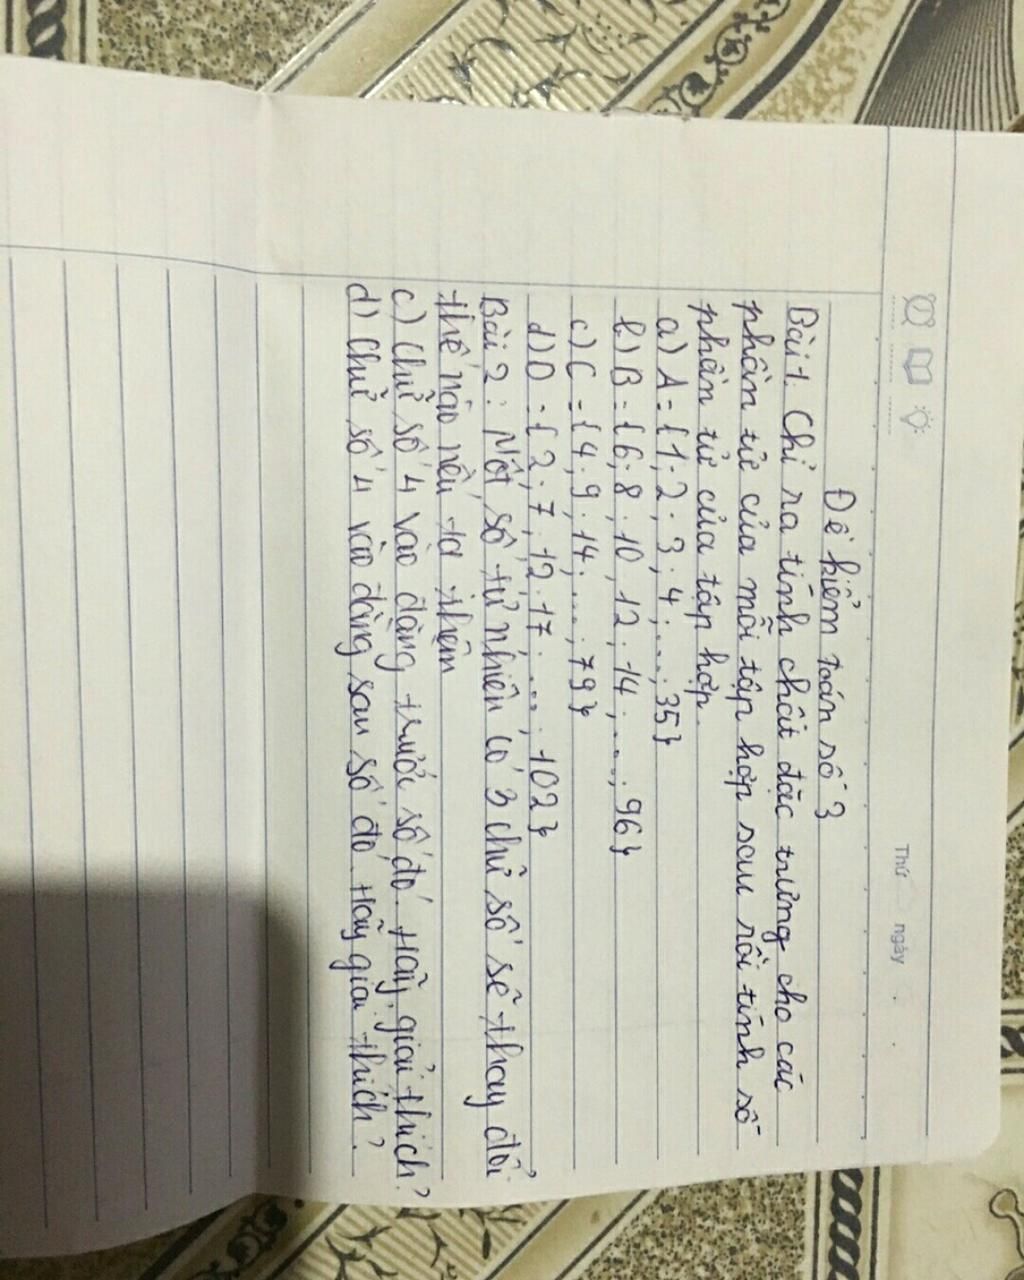 Thứ ngày
Đề kiểm toán số 3
Bài 1. Chỉ ra tính chất đặc trưng cho các
phần tử của mỗi tập hợp sau rồi tính số
phần tử của tập hợp.
a) A = {1; 2; 3; 4; ....; 35}
b) B = {6; 8; 10; 12; 14; ....; 96}
c) C = {4; 9; 14; ....; 79}
d) D = {2; 7; 12; 17; ....; 102}
Bài 2: Một số tự nhiên có 3 chữ số sẽ thay đổi
thế nào nếu ta thêm
c) Chữ số 4 vào đằng trước số đó. Hãy giải thích?
d) Chữ số 4 vào đằng sau số đó. Hãy giải thích?